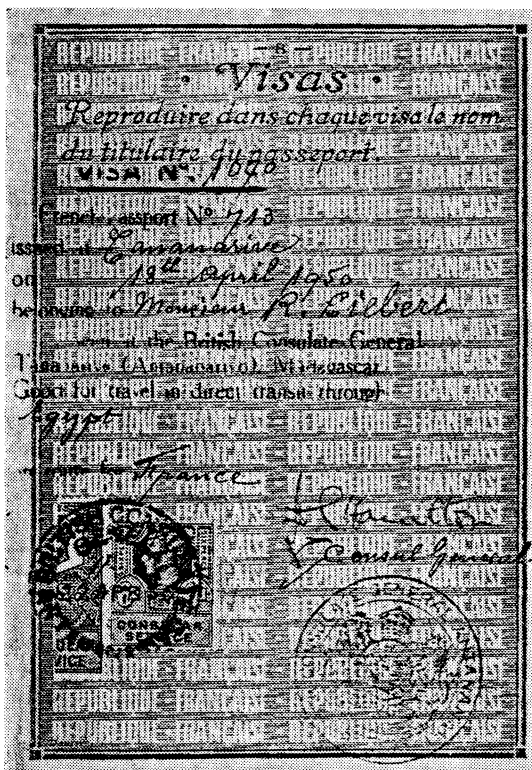 — 8 —
· Visas ·
Reproduire dans chaque visa le nom
du titulaire du passeport.
VISA Nº.
French Passport Nº 713
issued at Tananarive
on 18th April 1950
belonging to Monsieur R. Eilbert
at the British Consulate-General
Tananarive (Antananarivo), Madagascar
Good for travel in direct transit through
Egypt
France
Consul General
CONSULAR
SERVICE
VICE